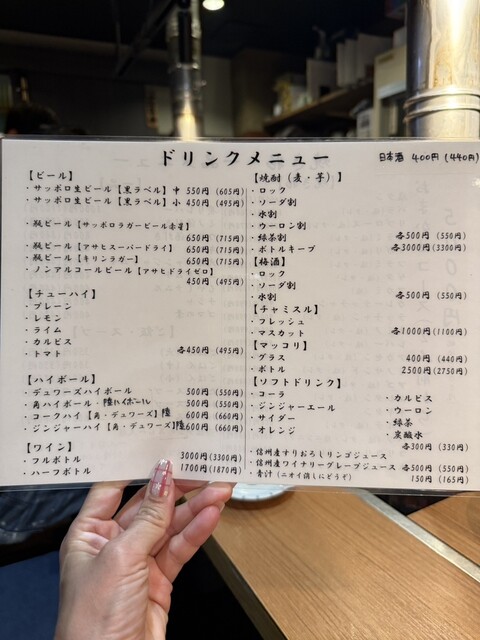 ドリンクメニュー
日本酒 400円(440円)
【ビール】
・サッポロ生ビール【黒ラベル】中 550円(605円)
・サッポロ生ビール【黒ラベル】小 450円(495円)
・瓶ビール【サッポロラガービール赤星】
650円(715円)
・瓶ビール【アサヒスーパードライ】 650円(715円)
・瓶ビール【キリンラガー】 650円(715円)
・ノンアルコールビール【アサヒドライゼロ】
450円(495円)
【チューハイ】
・プレーン
・レモン
・ライム
・カルピス
・トマト 各450円(495円)
【ハイボール】
・デュワーズハイボール 500円(550円)
・角ハイボール・陸ハイボール 500円(550円)
・コークハイ【角・デュワーズ】陸 600円(660円)
・ジンジャーハイ【角・デュワーズ】陸 600円(660円)
【ワイン】
・フルボトル 3000円(3300円)
・ハーフボトル 1700円(1870円)
【焼酎(麦・芋)】
・ロック
・ソーダ割
・水割
・ウーロン割
・緑茶割 各500円(550円)
・ボトルキープ 各3000円(3300円)
【梅酒】
・ロック
・ソーダ割
・水割 各500円(550円)
【チャミスル】
・フレッシュ
・マスカット 各1000円(1100円)
【マッコリ】
・グラス 400円(440円)
・ボトル 2500円(2750円)
【ソフトドリンク】
・コーラ ・カルピス
・ジンジャーエール ・ウーロン
・サイダー ・緑茶
・オレンジ ・炭酸水
各300円(330円)
・信州産すりおろしリンゴジュース
・信州産ワイナリーグレープジュース 各500円(550円)
・青汁(ニオイ消しにどうぞ) 150円(165円)